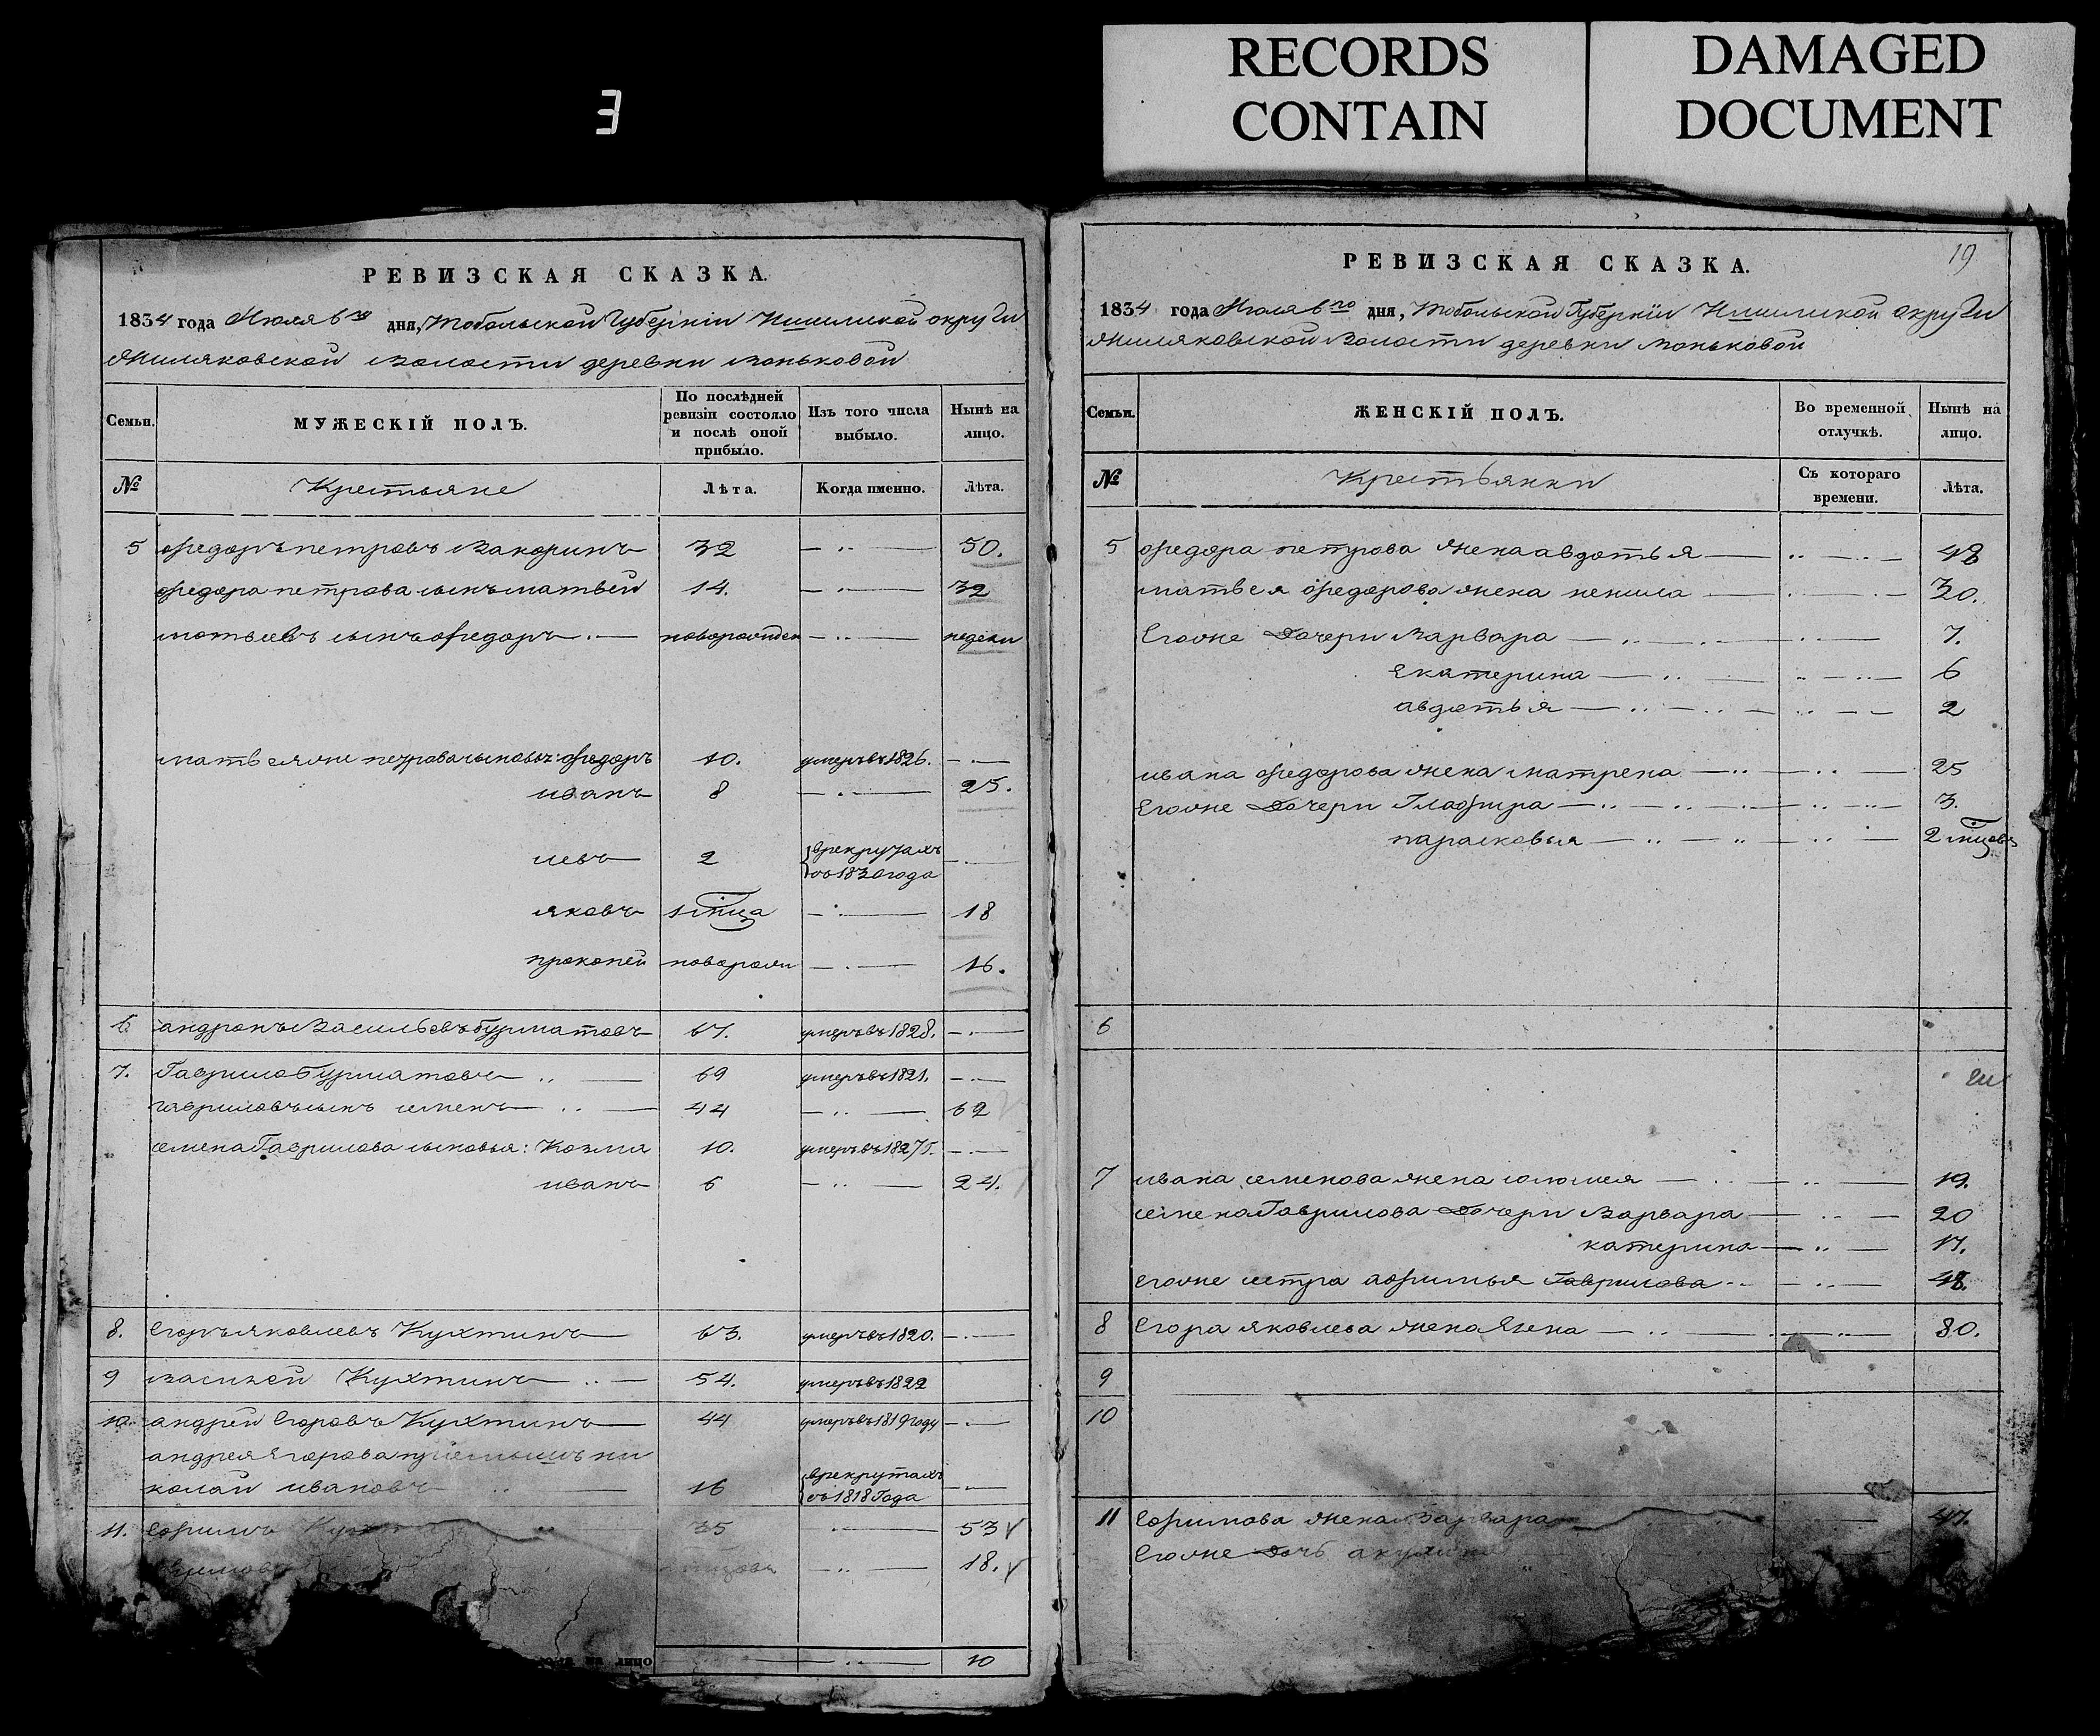 RECORDS CONTAIN
DAMAGED DOCUMENT
E
РЕВИЗСКАЯ СКАЗКА.
1834 года Июля 6го дня, Тобольской Губернiи Ишимской округи
волости деревни
Семьи. МУЖЕСКІЙ ПОЛЪ. По послѣдней ревизіи состояло и послѣ оной прибыло. Изъ того числа выбыло. Нынѣ на лицо.
№ Крестьяне Лѣта. Когда именно. Лѣта.
5 Федоръ петровъ 32 50.
Федора петрова сынъ матвей 14. 32
матвеевъ сынъ Федоръ недели
Федоръ 10. умеръ въ 1826.
иванъ 8 25.
левъ 2 врекрутахъ съ 1830 года
яковъ 18
прокопей 16.
6 андронъ Васильевъ бурматовъ 67. умеръ въ 1828.
7. Гаврило Бурматовъ 69 умеръ въ 1821.
гавриловъ сынъ семенъ 44 62
семена Гаврилова сыновья: Козма 10. умеръ въ 1827г.
иванъ 6 24.
8. Егоръ яковлевъ Кухтинъ 63. умеръ въ 1820.
9 василей Кухтинъ 54. умеръ въ 1822
10. андрей Егоровъ Кухтинъ 44 умеръ въ 1819 году
андрея Егорова ни
колай ивановъ 16 врекрутахъ съ 1818 Года
11. Ефимъ 35 53
18.
на лицо 10
19
РЕВИЗСКАЯ СКАЗКА.
1834 года Июля 6го дня, Тобольской Губернiи Ишимской округи
волости деревни
Семьи. ЖЕНСКІЙ ПОЛЪ. Во временной отлучкѣ. Нынѣ на лицо.
№ Крестьянки Съ котораго времени. Лѣта.
5 Федора петрова жена авдотья 48
матвея Федорова жена 30.
Егоже дочери Варвара 7.
Екатерина 6
авдотья 2
ивана Федорова жена матрена 25
Егоже дочери Глафира 3.
парасковья 2
6
7 ивана семенова жена 19.
семена Гаврилова дочери Варвара 20
катерина 17.
Егоже сестра афимья Гаврилова 48.
8 Егора яковлева жена 80.
9
10
11 Ефимова жена Варвара 47.
Егоже дочь акулина